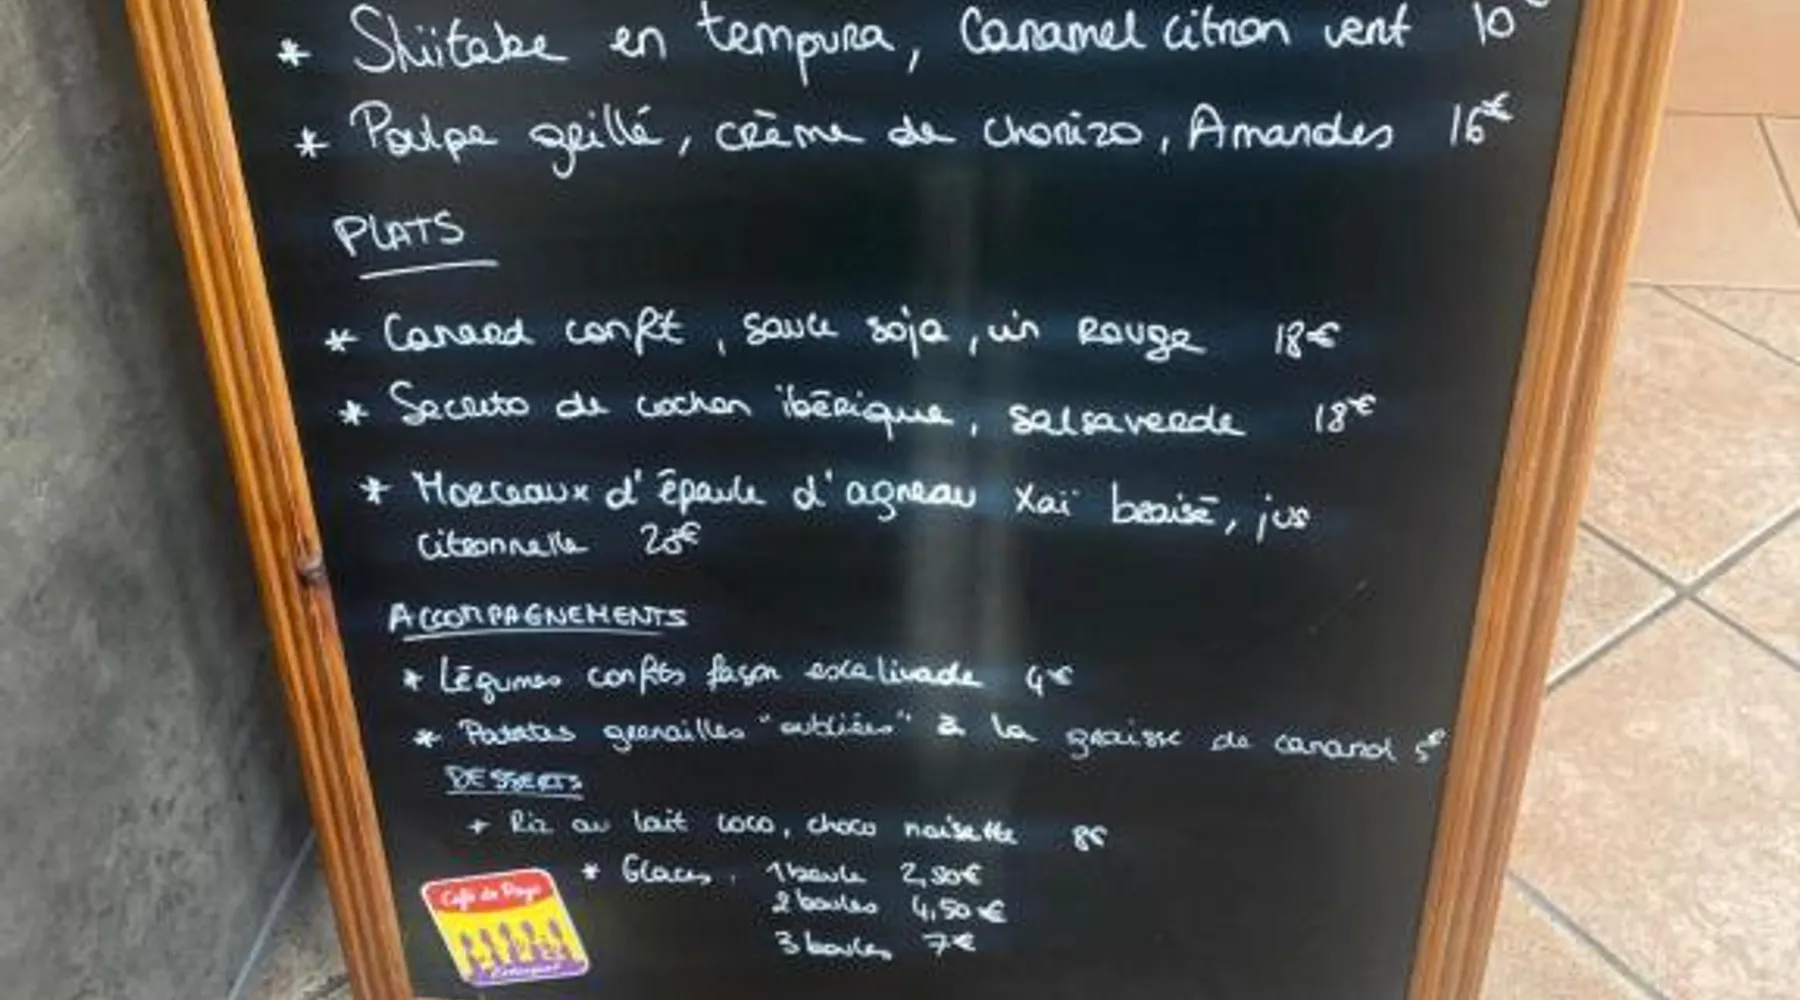 * Shiitake en tempura, Caramel citron vert 10€
* Poulpe grillé, crème de chorizo, Amandes 16€
PLATS
* Canard confit, sauce soja, vin Rouge 18€
* Secreto de cochon ibérique, salsaverde 18€
* Morceaux d'épaule d'agneau Xaï braisé, jus
citronnelle €
ACCOMPAGNEMENTS
* Légumes confits façon escalivade 4€
* Patates grenailles "oubliées" à la graisse de canard 5€
DESSERTS
* Riz au lait coco, choco noisette 8€
* Glaces, 1 boule 2,50€
2 boules 4,50€
3 boules 7€
Café de Pays